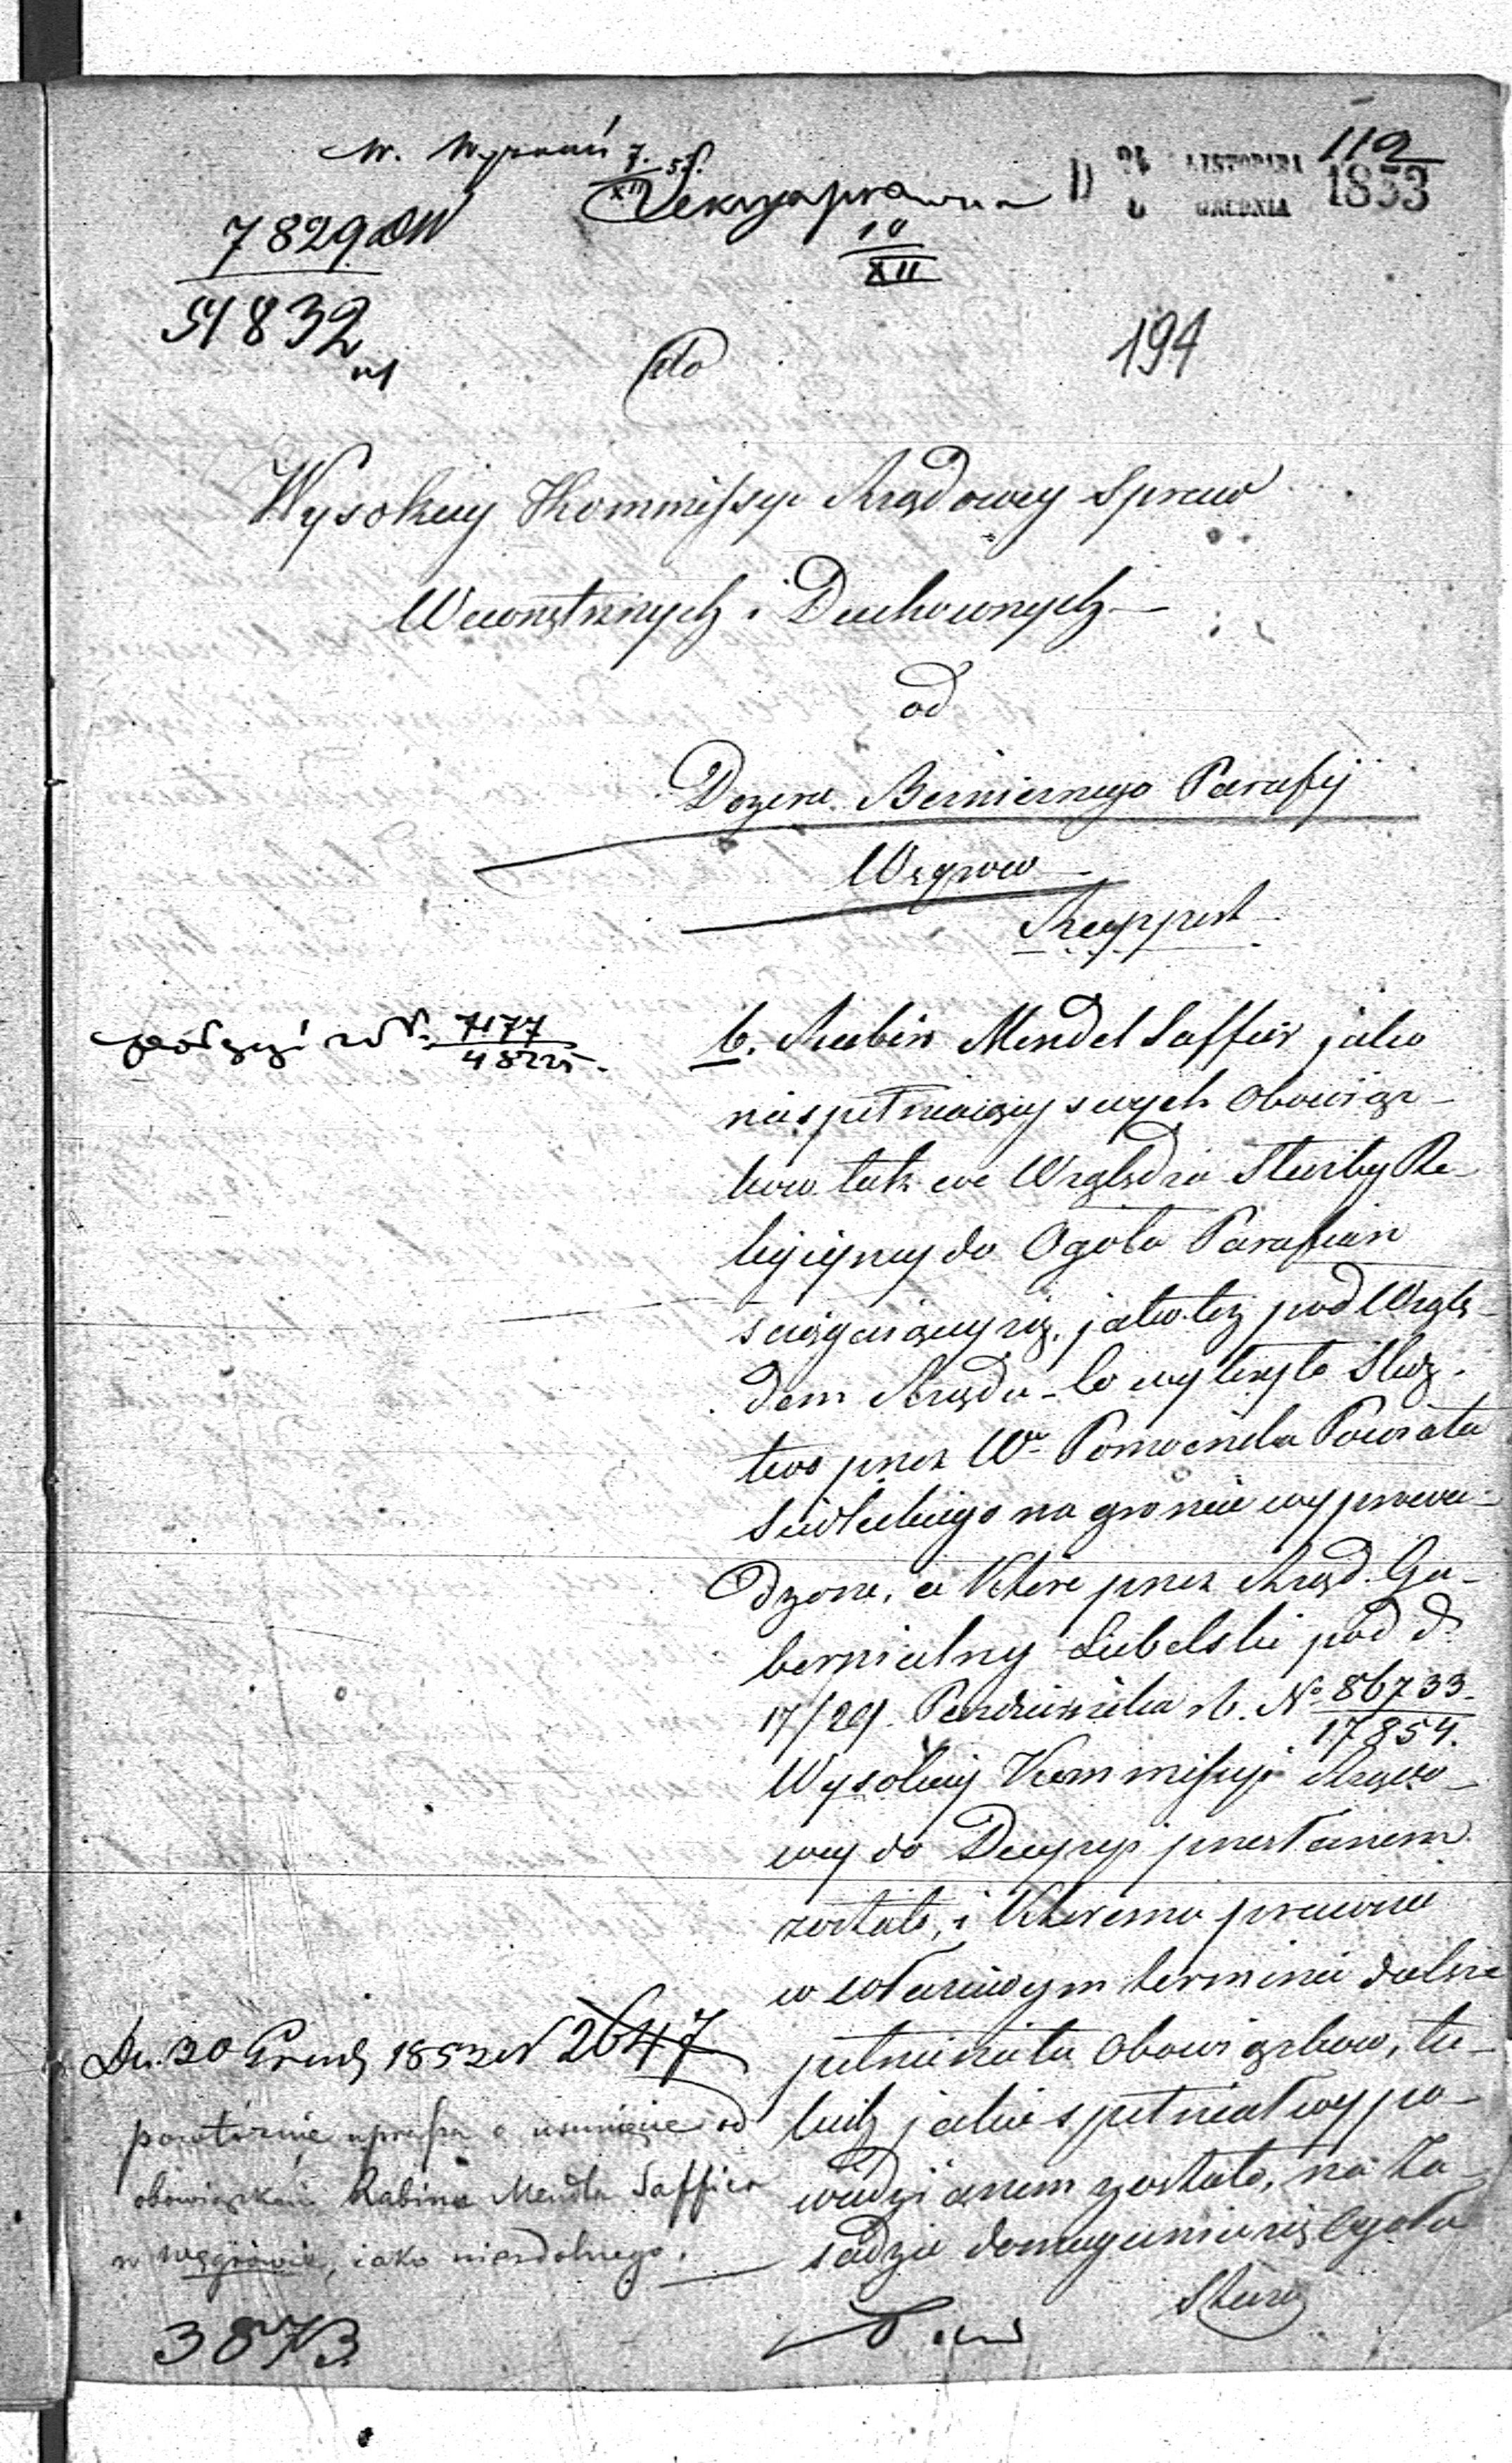 W. Wyznań 7/XII 53.
Sekcya prawna
10/XII
112
LISTOPADA
GRUDNIA 1853
7829
51832
194
Do
Wysokiey Kommissyi Rządowey Spraw
Wewnętrznych i Duchownych
od
Dozoru Bożniczego Parafij
Węgrow
Rapport
7177
48225
b. Rabin Mendel Saffir jako
niespełniaiący swych Obowiąz-
kow tak we Względzie Służby Re-
ligijney do Ogołu Parafian
sciągaiącey się, jako też pod Wzglę-
dem Rządu - co wykryto Sledz-
two przez Wo Pomocnika Powiatu
Siedleckiego na groncie wyprowa-
dzone, a Które przez Rząd Gu-
bernialny Lubelski pod d.
17/29 Pazdziernika rb. No 86733/17854.
Wysokiey Kommissyi Rządo-
wey do Decyzyi przesłanem
zostało, i Któremu prawnie
w właściwym terminie dalsze
pełnienie Obowiązkow, tu-
dzież jakie spełniał wypo-
wiedzianem zostało, na Za-
sadzie domagania się Ogołu
Staro
Dn. 20 Grud 1853 N 2647
powtórnie uprasza o usunięcie od
obowiązków Rabina Mendla Saffira
w Węgrowie, iako niezdolnego.
3873